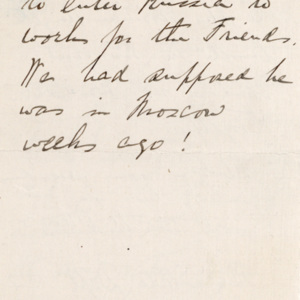 to enter Russia to
works for the Friends.
We had supposed he
was in Moscow
weeks ago!